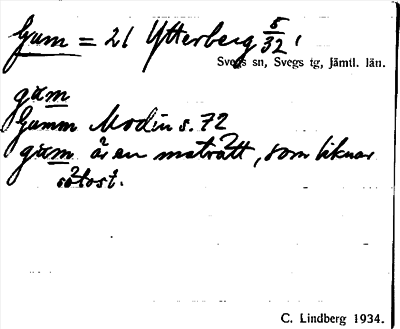 Gum = 21 Ytterberg 5/32 1
Svegs sn, Svegs tg, Jämtl. län.
gum
Gumm Modin s. 72
gum är en maträtt, som liknar
sötost.
C. Lindberg 1934.